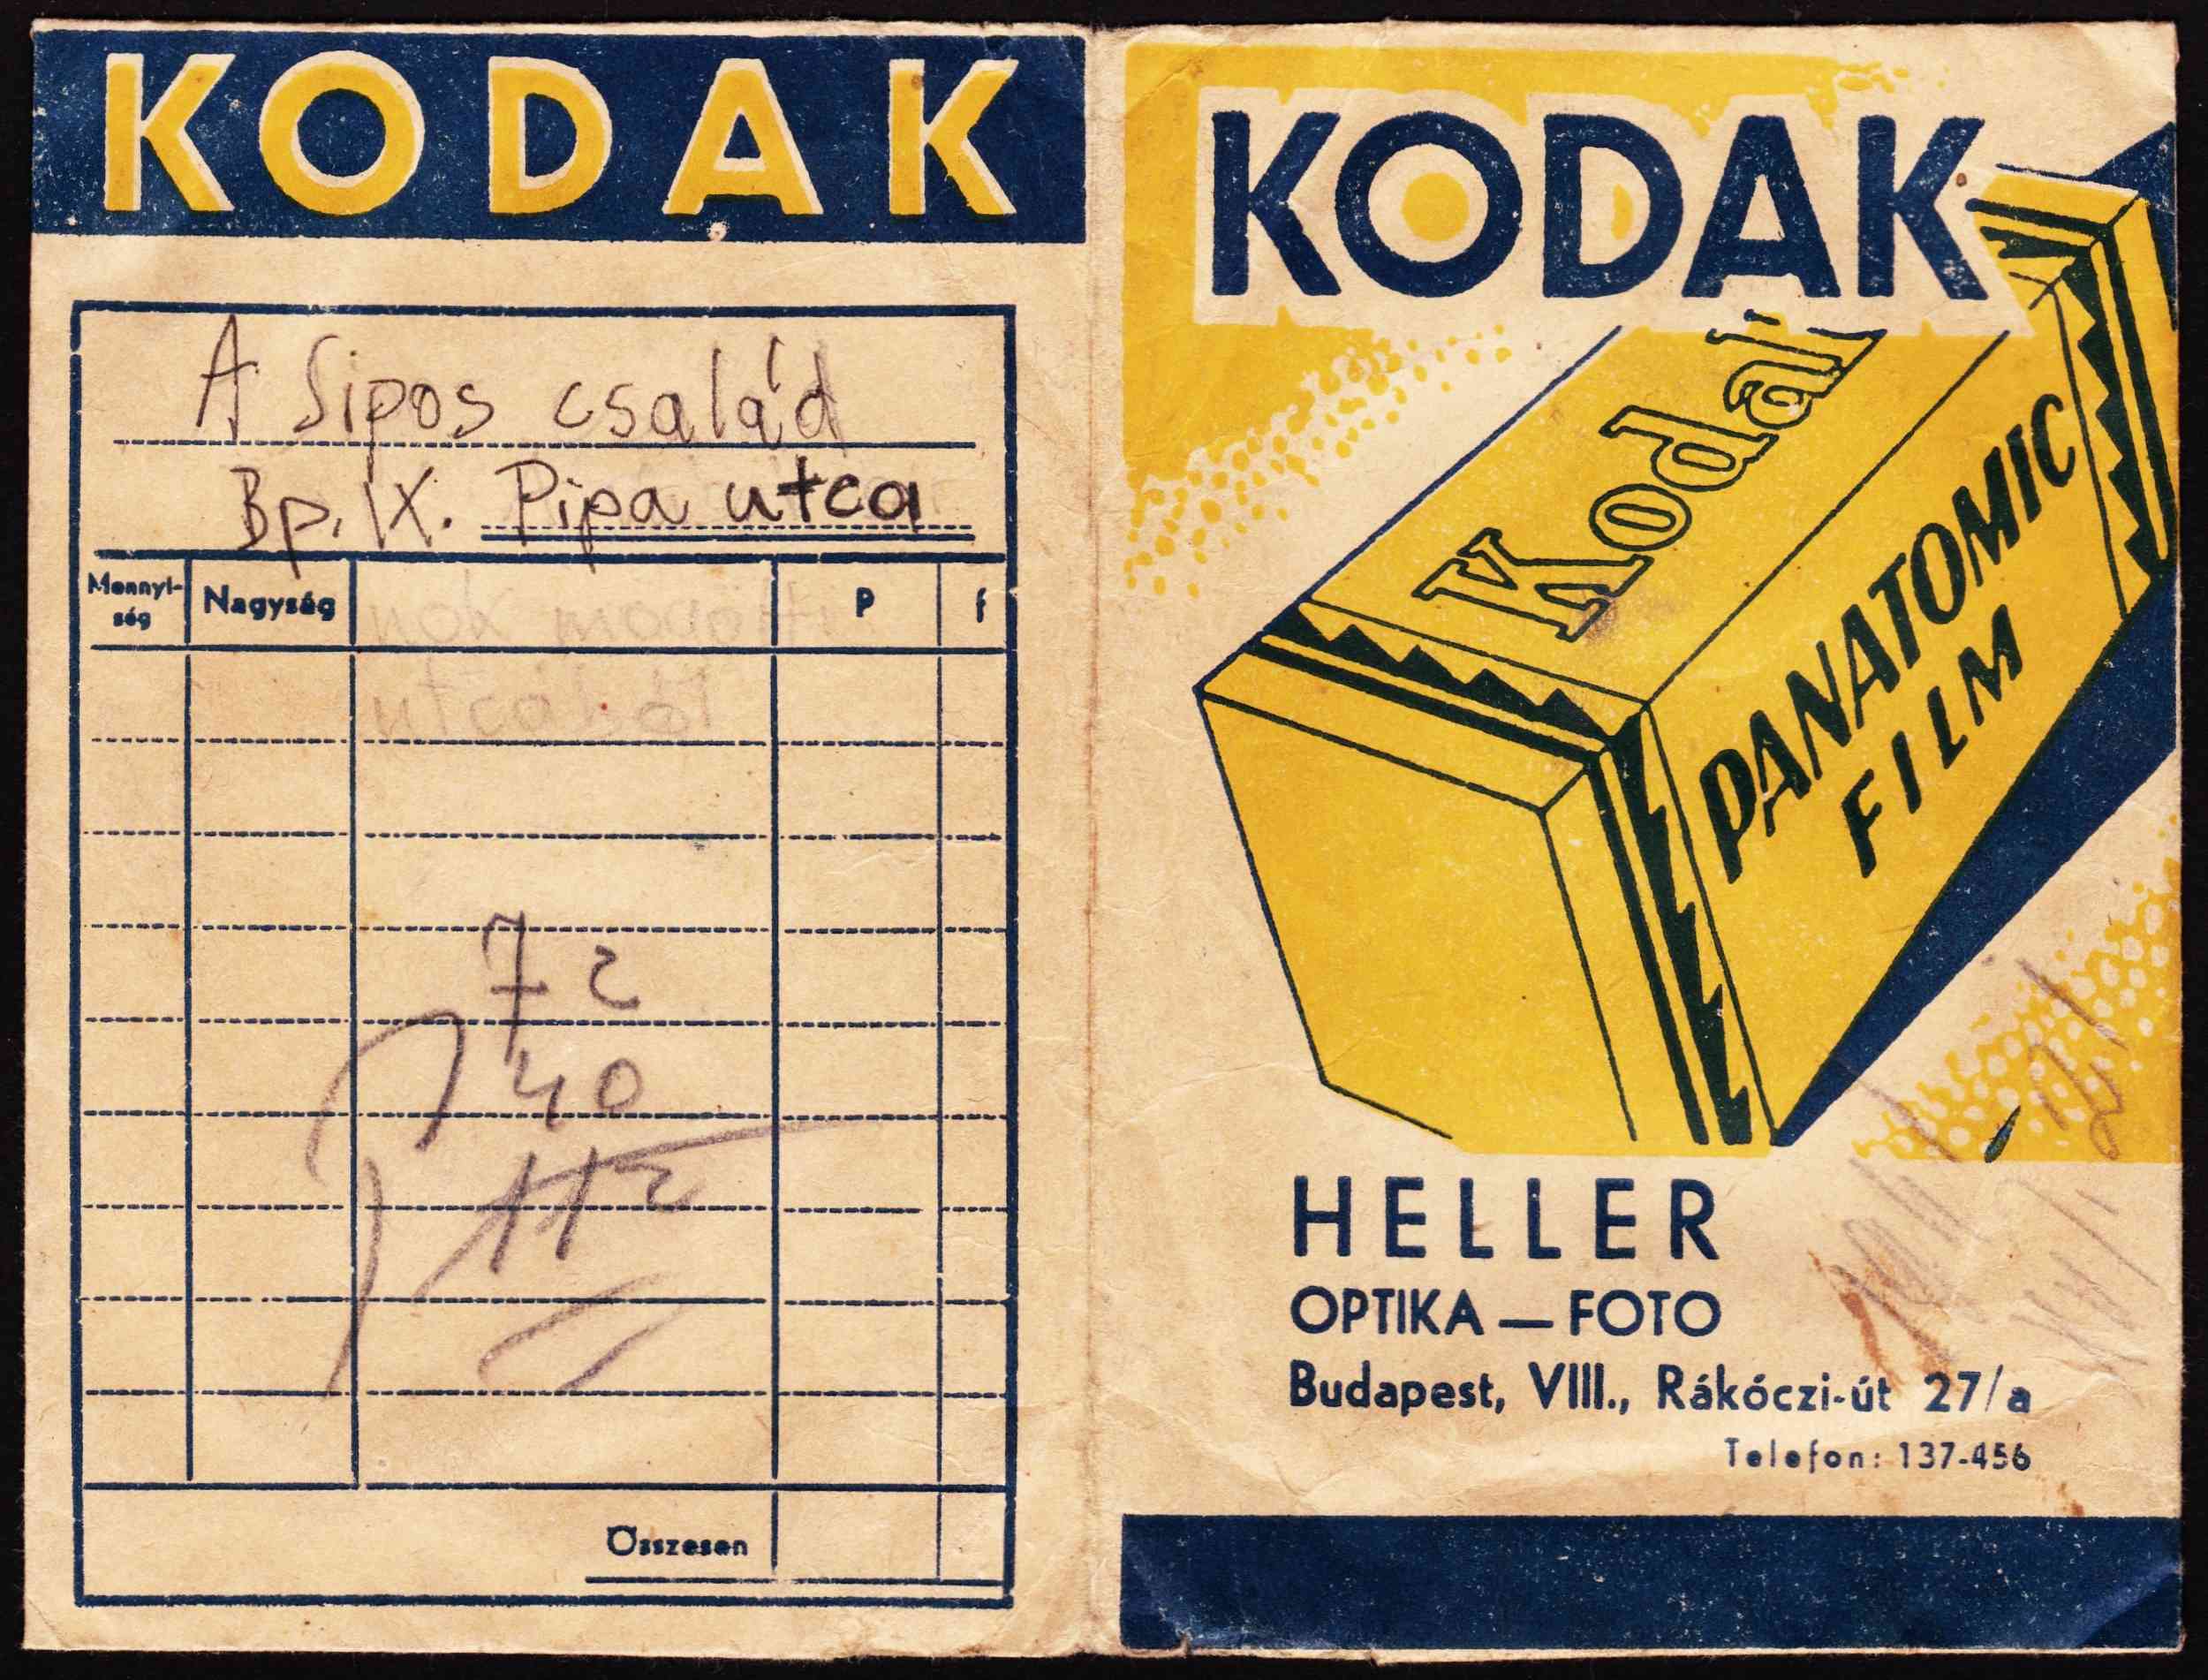 KODAK
A Sipos család
Bp. IX. Pipa utca
Mennyi-
ség
Nagyság
P
f
utcából
72
40
112
Összesen
KODAK
Kodak
PANATOMIC
FILM
HELLER
OPTIKA — FOTO
Budapest, VIII., Rákóczi-út 27/a
Telefon: 137-456